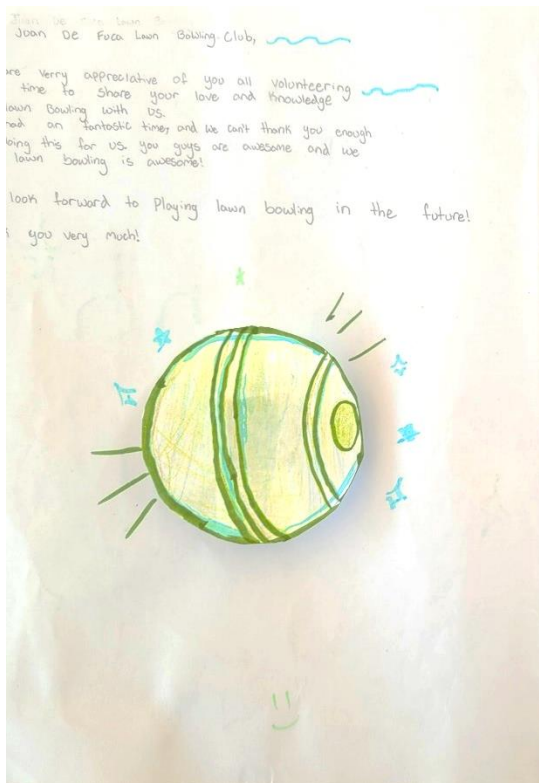 Juan De Fuca Lawn Bowling Club,
are verry appreciative of you all volunteering
time to share your love and knowledge
lawn Bowling with us.
had an fantastic time, and we can't thank you enough
doing this for us. you guys are awesome and we
lawn bowling is awesome!
look forward to Playing lawn bowling in the future!
you very much!